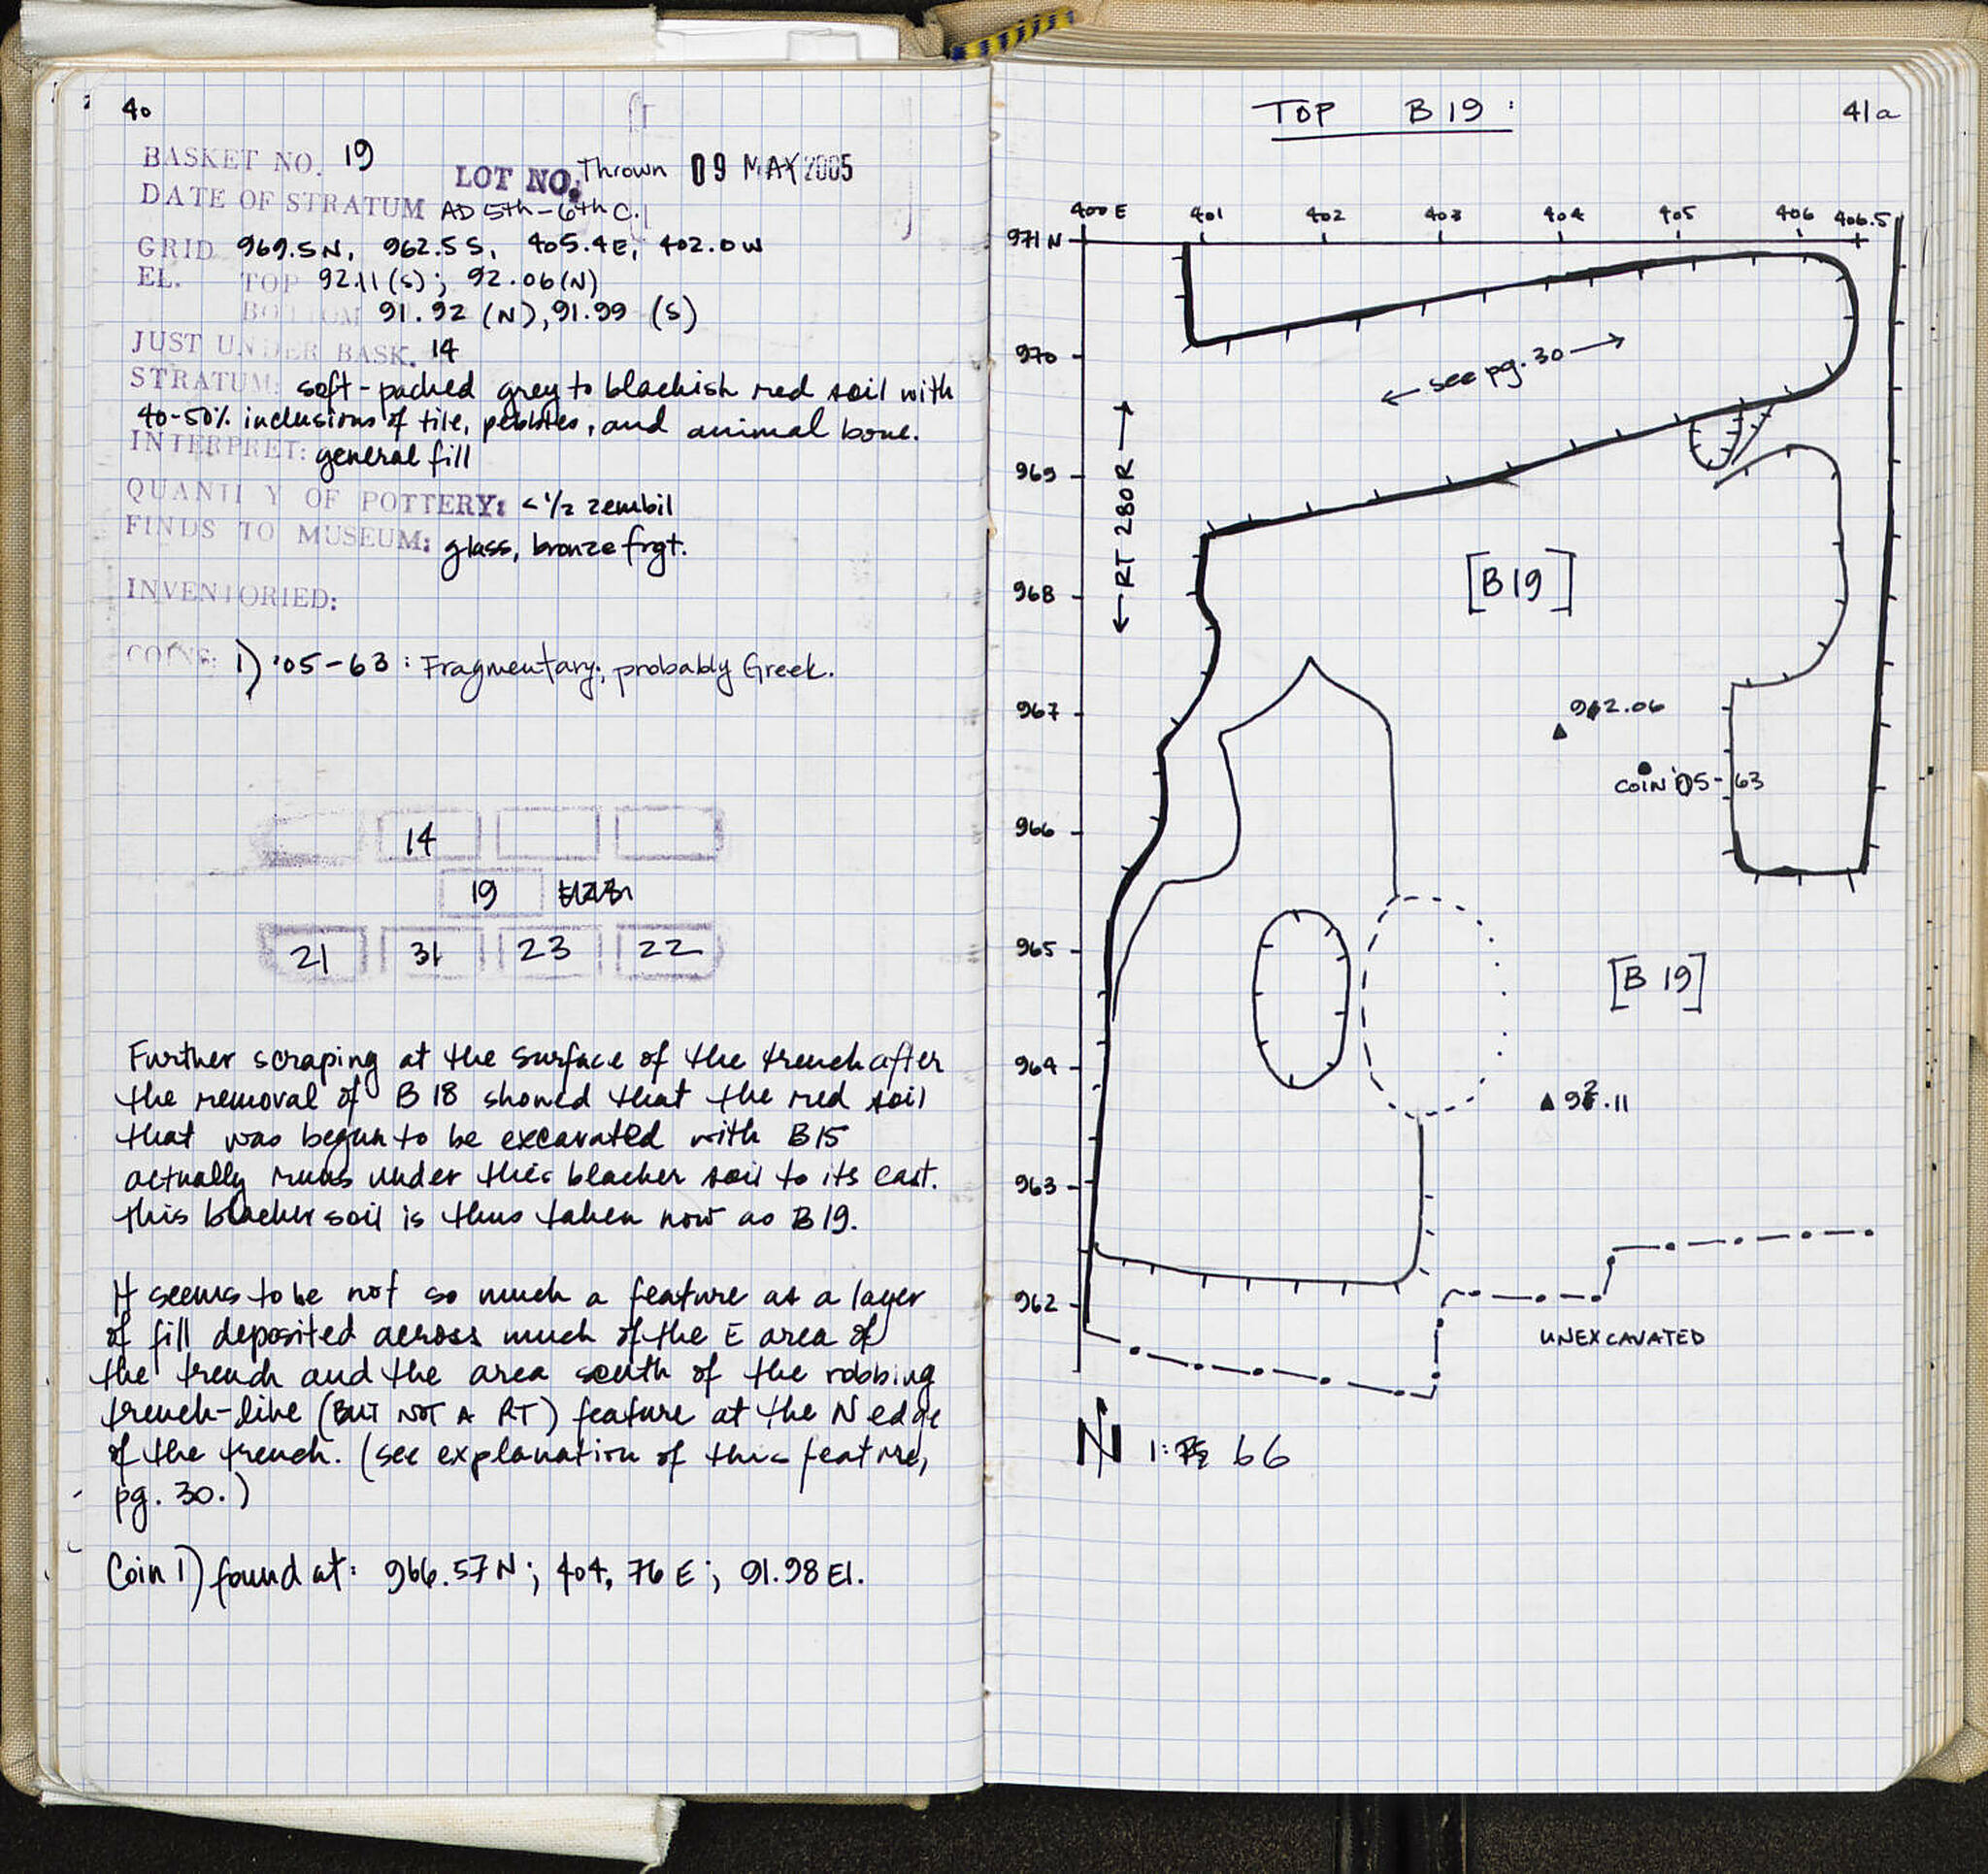 40
BASKET NO. 19
LOT NO. Thrown 09 MAY 2005
DATE OF STRATUM AD 5th-6th C.
GRID 969.5N, 962.5S, 405.4E, 402.0W
EL. TOP 92.11(S); 92.06(N)
BOTTOM 91.92 (N), 91.99 (S)
JUST UNDER BASK. 14
STRATUM: soft-packed grey to blackish red soil with
40-50% inclusions of tile, pebbles, and animal bone.
INTERPRET: general fill
QUANTITY OF POTTERY: <1/2 zembil
FINDS TO MUSEUM: glass, bronze frgt.
INVENTORIED:
COINS: 1) '05-63: Fragmentary; probably Greek.
14
19
21 31 23 22
Further scraping at the surface of the trench after
the removal of B 18 showed that the red soil
that was begun to be excavated with B15
actually runs under this blacker soil to its east.
this blacker soil is thus taken now as B19.
It seems to be not so much a feature as a layer
of fill deposited across much of the E area of
the trench and the area south of the robbing
trench-like (BUT NOT A RT) feature at the N edge
of the trench. (see explanation of this feature,
pg. 30.)
Coin 1) found at: 966.57N; 404.76E; 91.98 El.
TOP B19:
41a
400E 401 402 403 404 405 406 406.5
971N
970
969
968
967
966
965
964
963
962
← see pg. 30 →
← RT 280R →
[B19]
92.06
COIN '05-63
[B 19]
92.11
UNEXCAVATED
N 1: 66